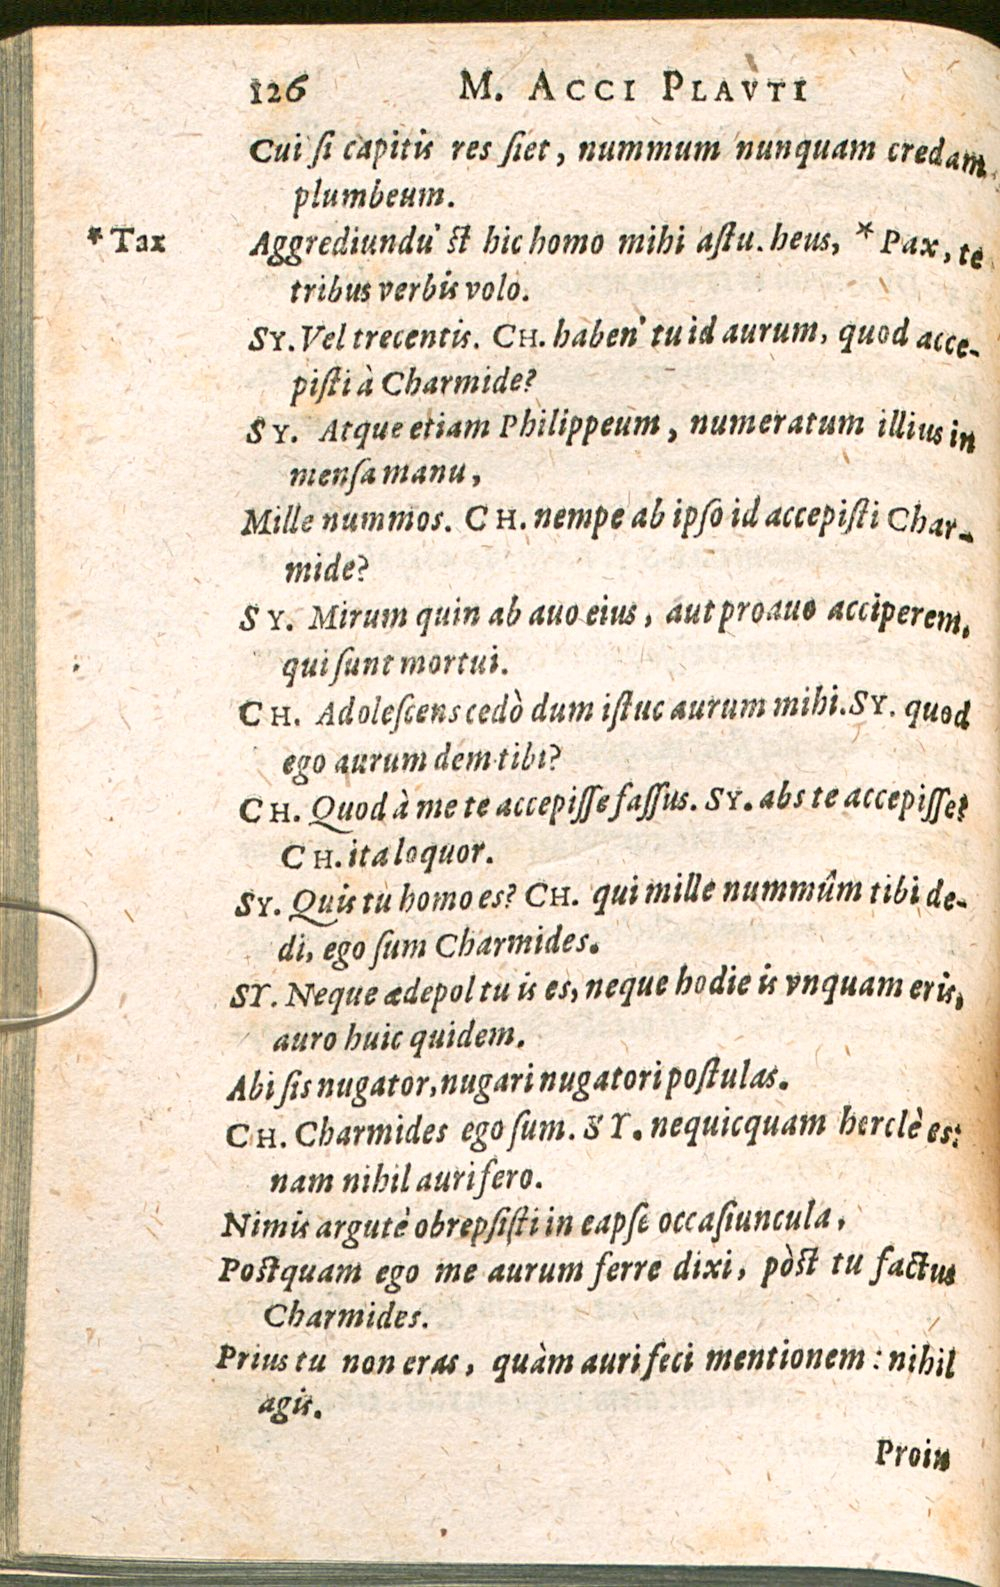 126 M. ACCI PLAVTI
Cui ſi capitis res ſiet, nummum nunquam credam
plumbeum.
*Tax Aggrediundu' ſt hic homo mihi aſtu. heus, *Pax, te
tribus verbis volo.
SY. Vel trecentis. CH. haben' tu id aurum, quod acce-
piſti à Charmide?
SY. Atque etiam Philippeum, numeratum illius in
menſa manu,
Mille nummos. CH. nempe ab ipſo id accepiſti Char-
mide?
SY. Mirum quin ab auo eius, aut proauo acciperem,
qui ſunt mortui.
CH. Adoleſcens cedò dum iſtuc aurum mihi. SY. quod
ego aurum dem tibi?
CH. Quod à me te accepiſſe faſſus. SY. abs te accepiſſe?
CH. ita loquor.
SY. Quis tu homo es? CH. qui mille nummûm tibi de-
di, ego ſum Charmides.
SY. Neque ædepol tu is es, neque hodie is vnquam eris,
auro huic quidem.
Abi ſis nugator, nugari nugatori poſtulas.
CH. Charmides ego ſum. SY. nequicquam herclè es:
nam nihil auri fero.
Nimis argutè obrepſiſti in eapſe occaſiuncula,
Poſtquam ego me aurum ferre dixi, pòſt tu factus
Charmides.
Prius tu non eras, quàm auri feci mentionem: nihil
agis.
Proin